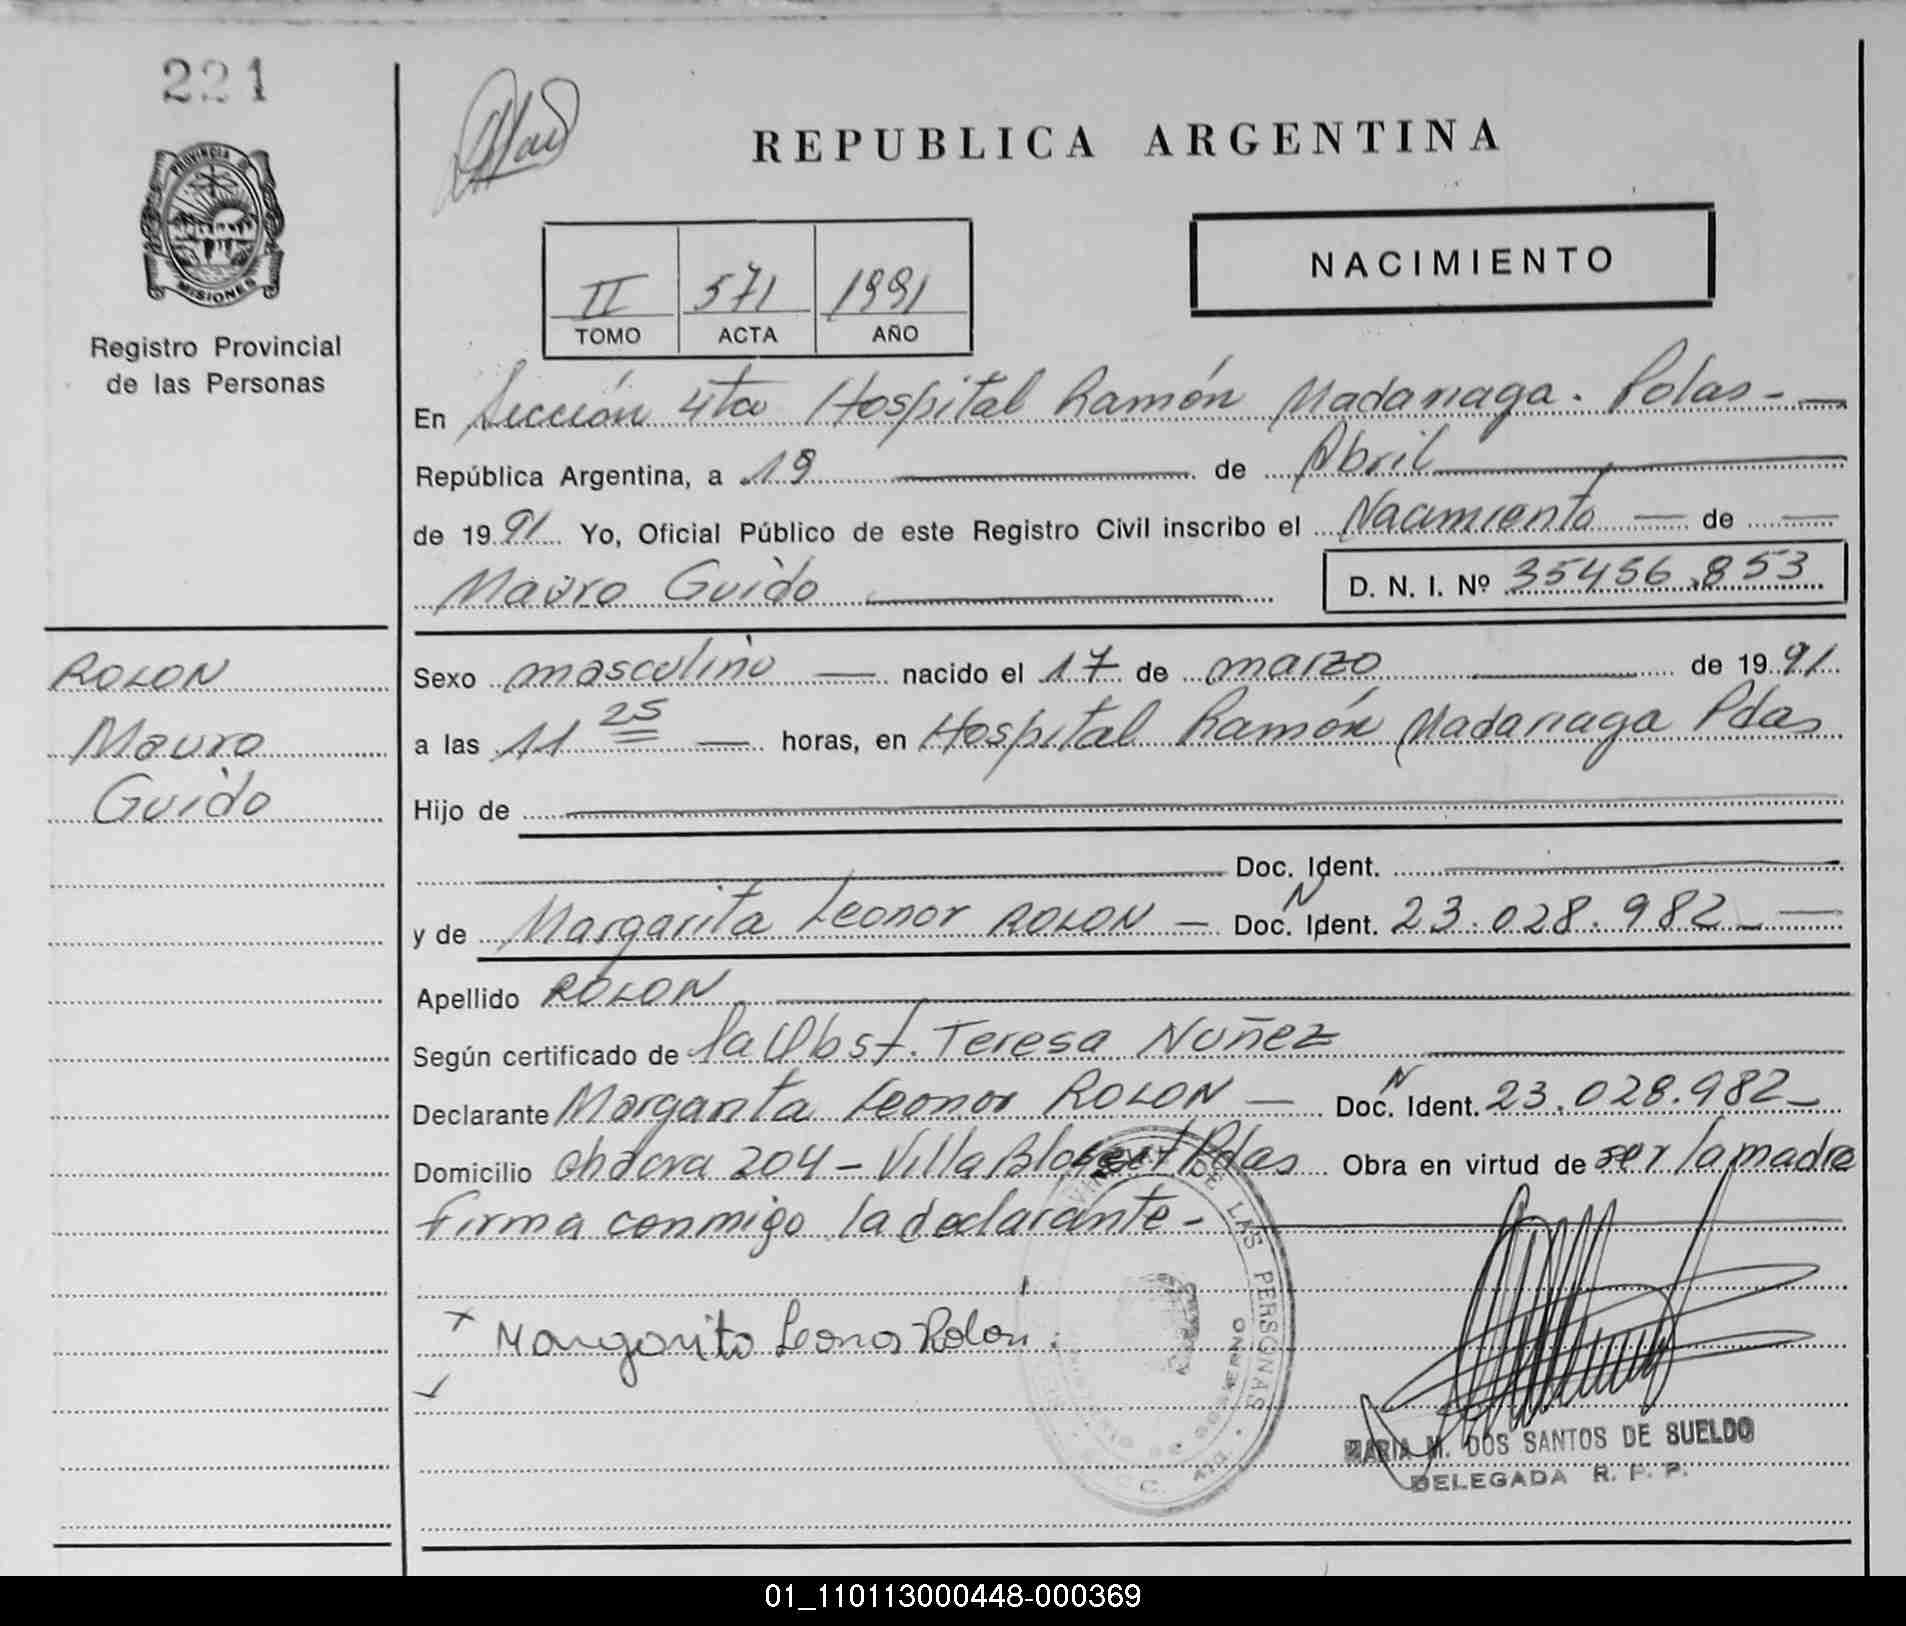 221
PROVINCIA DE
MISIONES
Registro Provincial
de las Personas
REPUBLICA ARGENTINA
NACIMIENTO
II 571 1991
TOMO ACTA AÑO
En Sección 4ta Hospital Ramón Madariaga. Pdas - —
República Argentina, a 19 — de Abril —
de 1991 Yo, Oficial Público de este Registro Civil inscribo el Nacimiento — de —
Mauro Guido — D. N. I. Nº 35456.853
ROLON
Mauro
Guido
Sexo masculino — nacido el 17 de marzo — de 1991
a las 11 25 — horas, en Hospital Ramón Madariaga Pdas
Hijo de —
— Doc. Ident. —
y de Margarita Leonor ROLON — Doc. N Ident. 23.028.982 - —
Apellido ROLON —
Según certificado de la Obst. Teresa Nuñez —
Declarante Margarita Leonor ROLON — Doc. N Ident. 23.028.982 -
Domicilio chacra 204 - Villa Pdas Obra en virtud de ser la madre
firma conmigo la declarante - —
x Margarita Leonor Rolon
DE LAS PERSONAS
MINISTERIO DE GOBIERNO
MARIA M. DOS SANTOS DE SUELDO
DELEGADA R. P. P.
01_110113000448-000369